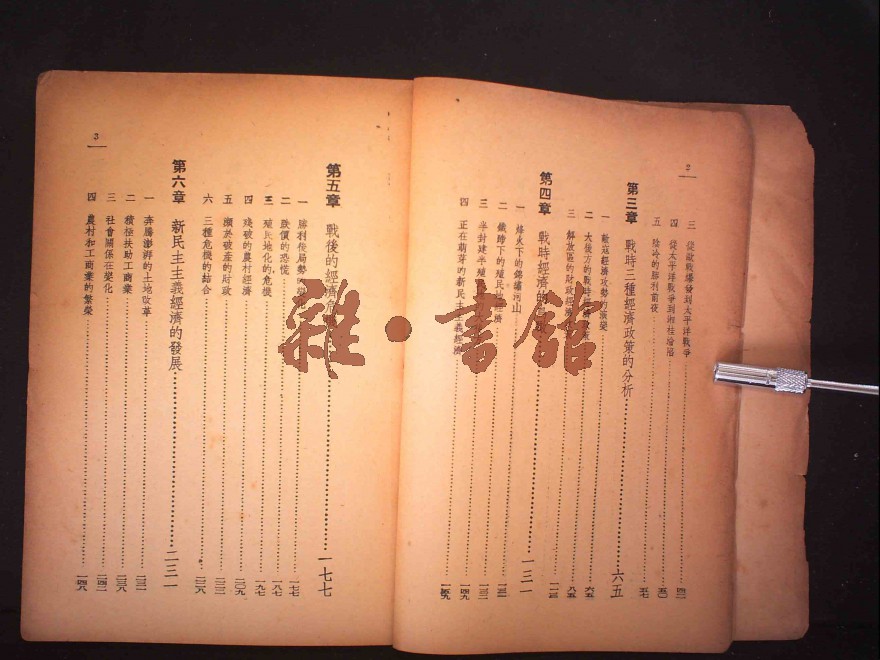 2
三 從歐戰爆發到太平洋戰爭 四二
四 從太平洋戰爭到湘桂淪陷 五〇
五 陰冷的勝利前夜 五七
第三章 戰時三種經濟政策的分析 六五
一 敵寇經濟攻勢的演變 六五
二 大後方的戰時經濟政策 八五
三 解放區的財政經濟
第四章 戰時經濟的 一三一
一 烽火下的錦繡河山
二 鐵蹄下的殖民地經濟
三 半封建半殖
四 正在萌芽的新民主主義經濟
3
第五章 戰後的經濟危 一七七
一 勝利後局勢的 一七七
二 跌價的恐慌 一八七
三 殖民地化的危機 一九七
四 殘破的農村經濟 二〇九
五 瀕於破產的財政
六 三種危機的結合
第六章 新民主主義經濟的發展 二三一
一 奔騰澎湃的土地改革 二三一
二 積極扶助工商業 二三八
三 社會關係在變化 二四三
四 農村和工商業的繁榮 二四八
雜·書館